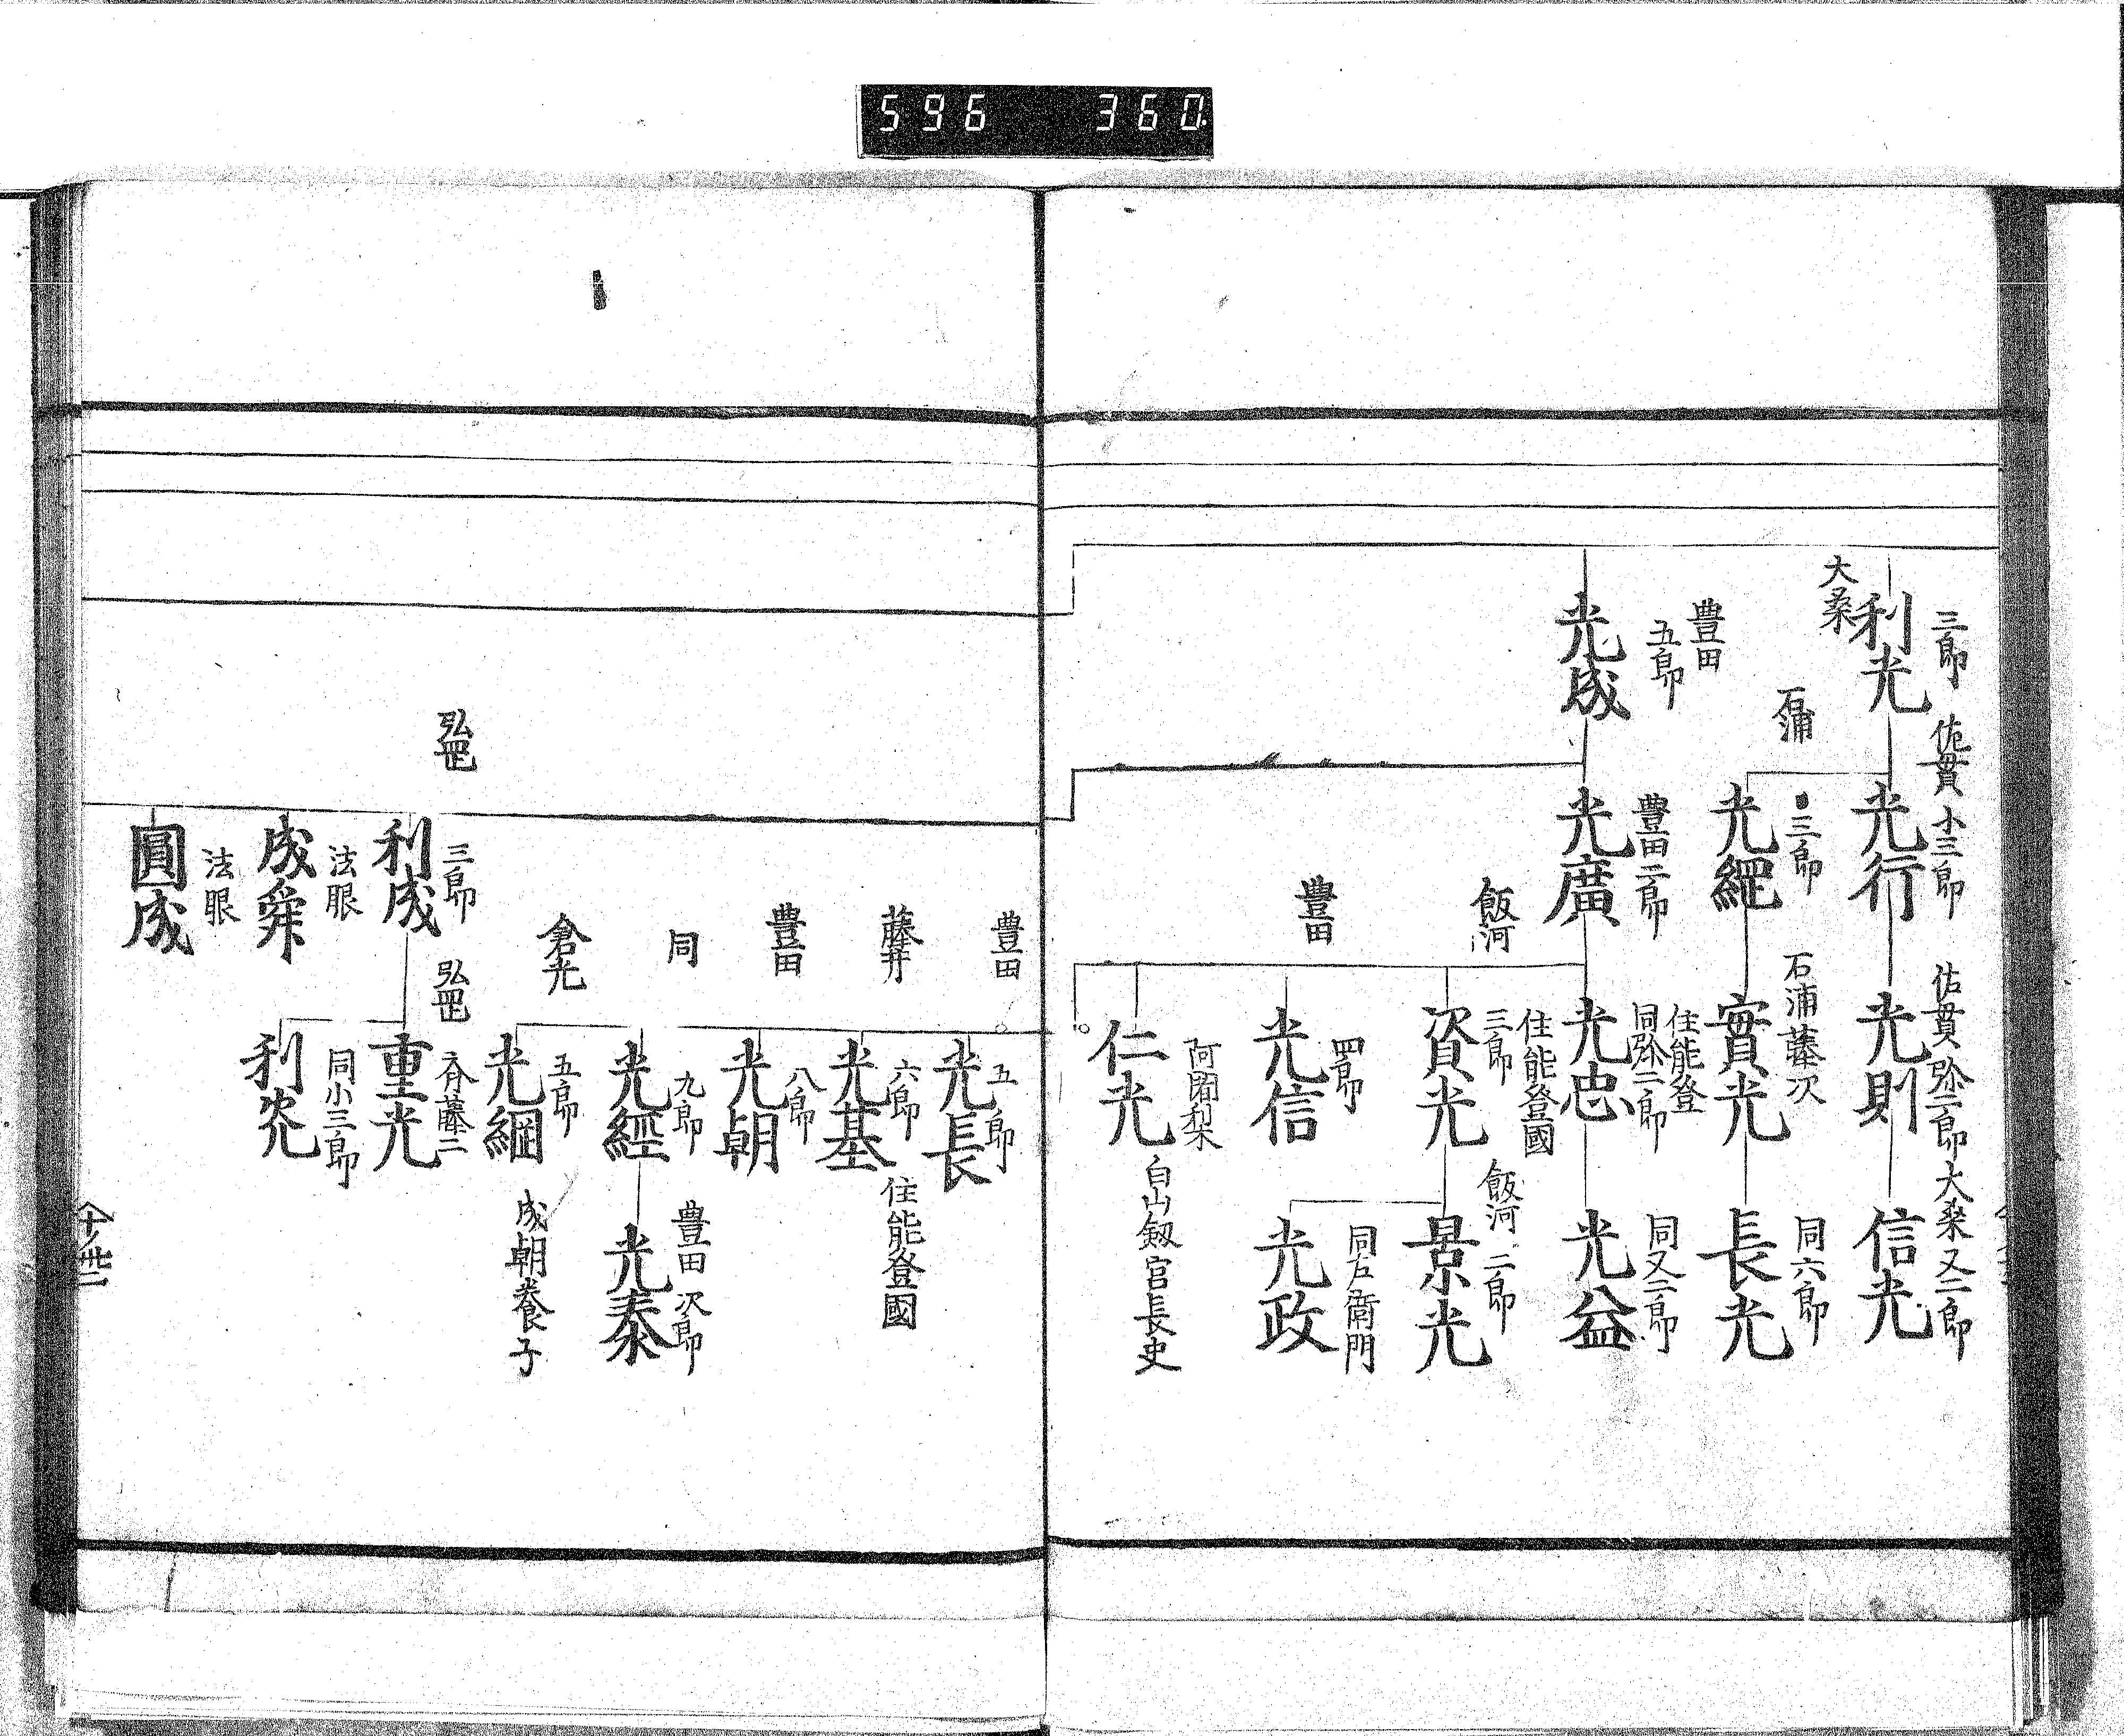 596 360
三郎
利光
大桑
佐貫小三郎
光行
佐貫弥二郎
光則
大桑又二郎
信光
石浦
三郎
光綱
石浦藤次
實光
同六郎
長光
豊田
五郎
光成
豊田二郎
光廣
住能登
同弥二郎
光忠
同又二郎
光益
飯河
住能登國
三郎
資光
飯河二郎
景光
同左衛門
光政
豊田
四郎
光信
阿闍梨
仁光
白山劔宮長吏
豊田
五郎
光長
藤井
六郎
光基
住能登國
豊田
八郎
光朝
同
九郎
光經
豊田次郎
光泰
倉光
五郎
光綱
成朝養子
弘岡
三郎
利成
弘岡
斉藤二
重光
同小三郎
利光
法眼
成舜
法眼
圓成